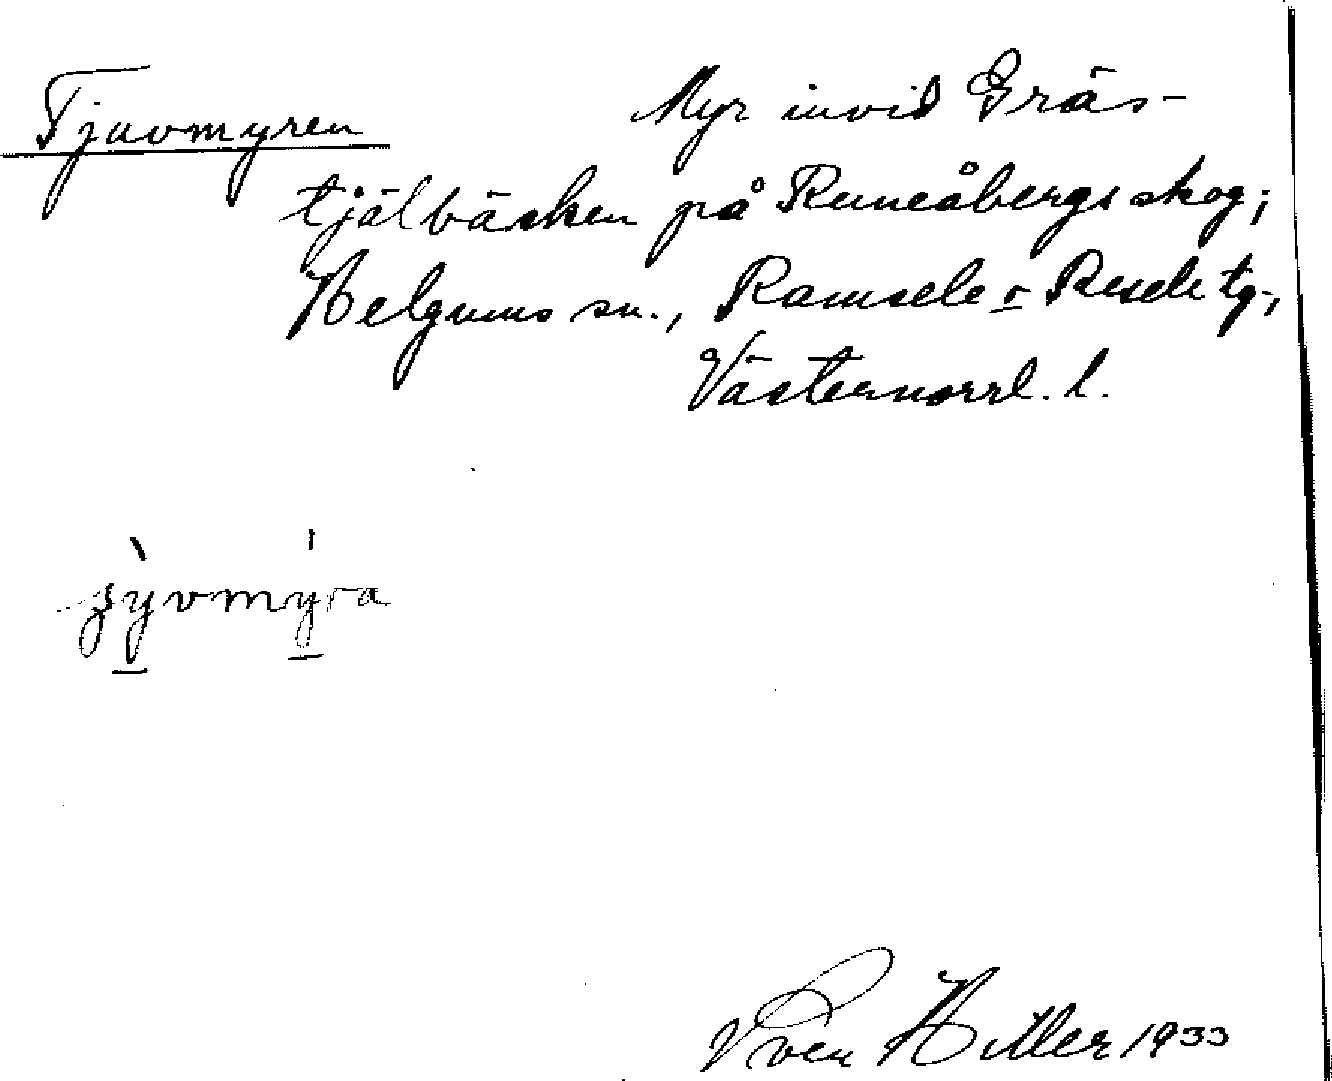 Tjuvmyren Myr invid Gräs-
tjälbäcken på Runeåbergs skog;
Helgums sn., Ramsele o Resele tg.,
Västernorrl. l.
Sven Hiller 1933